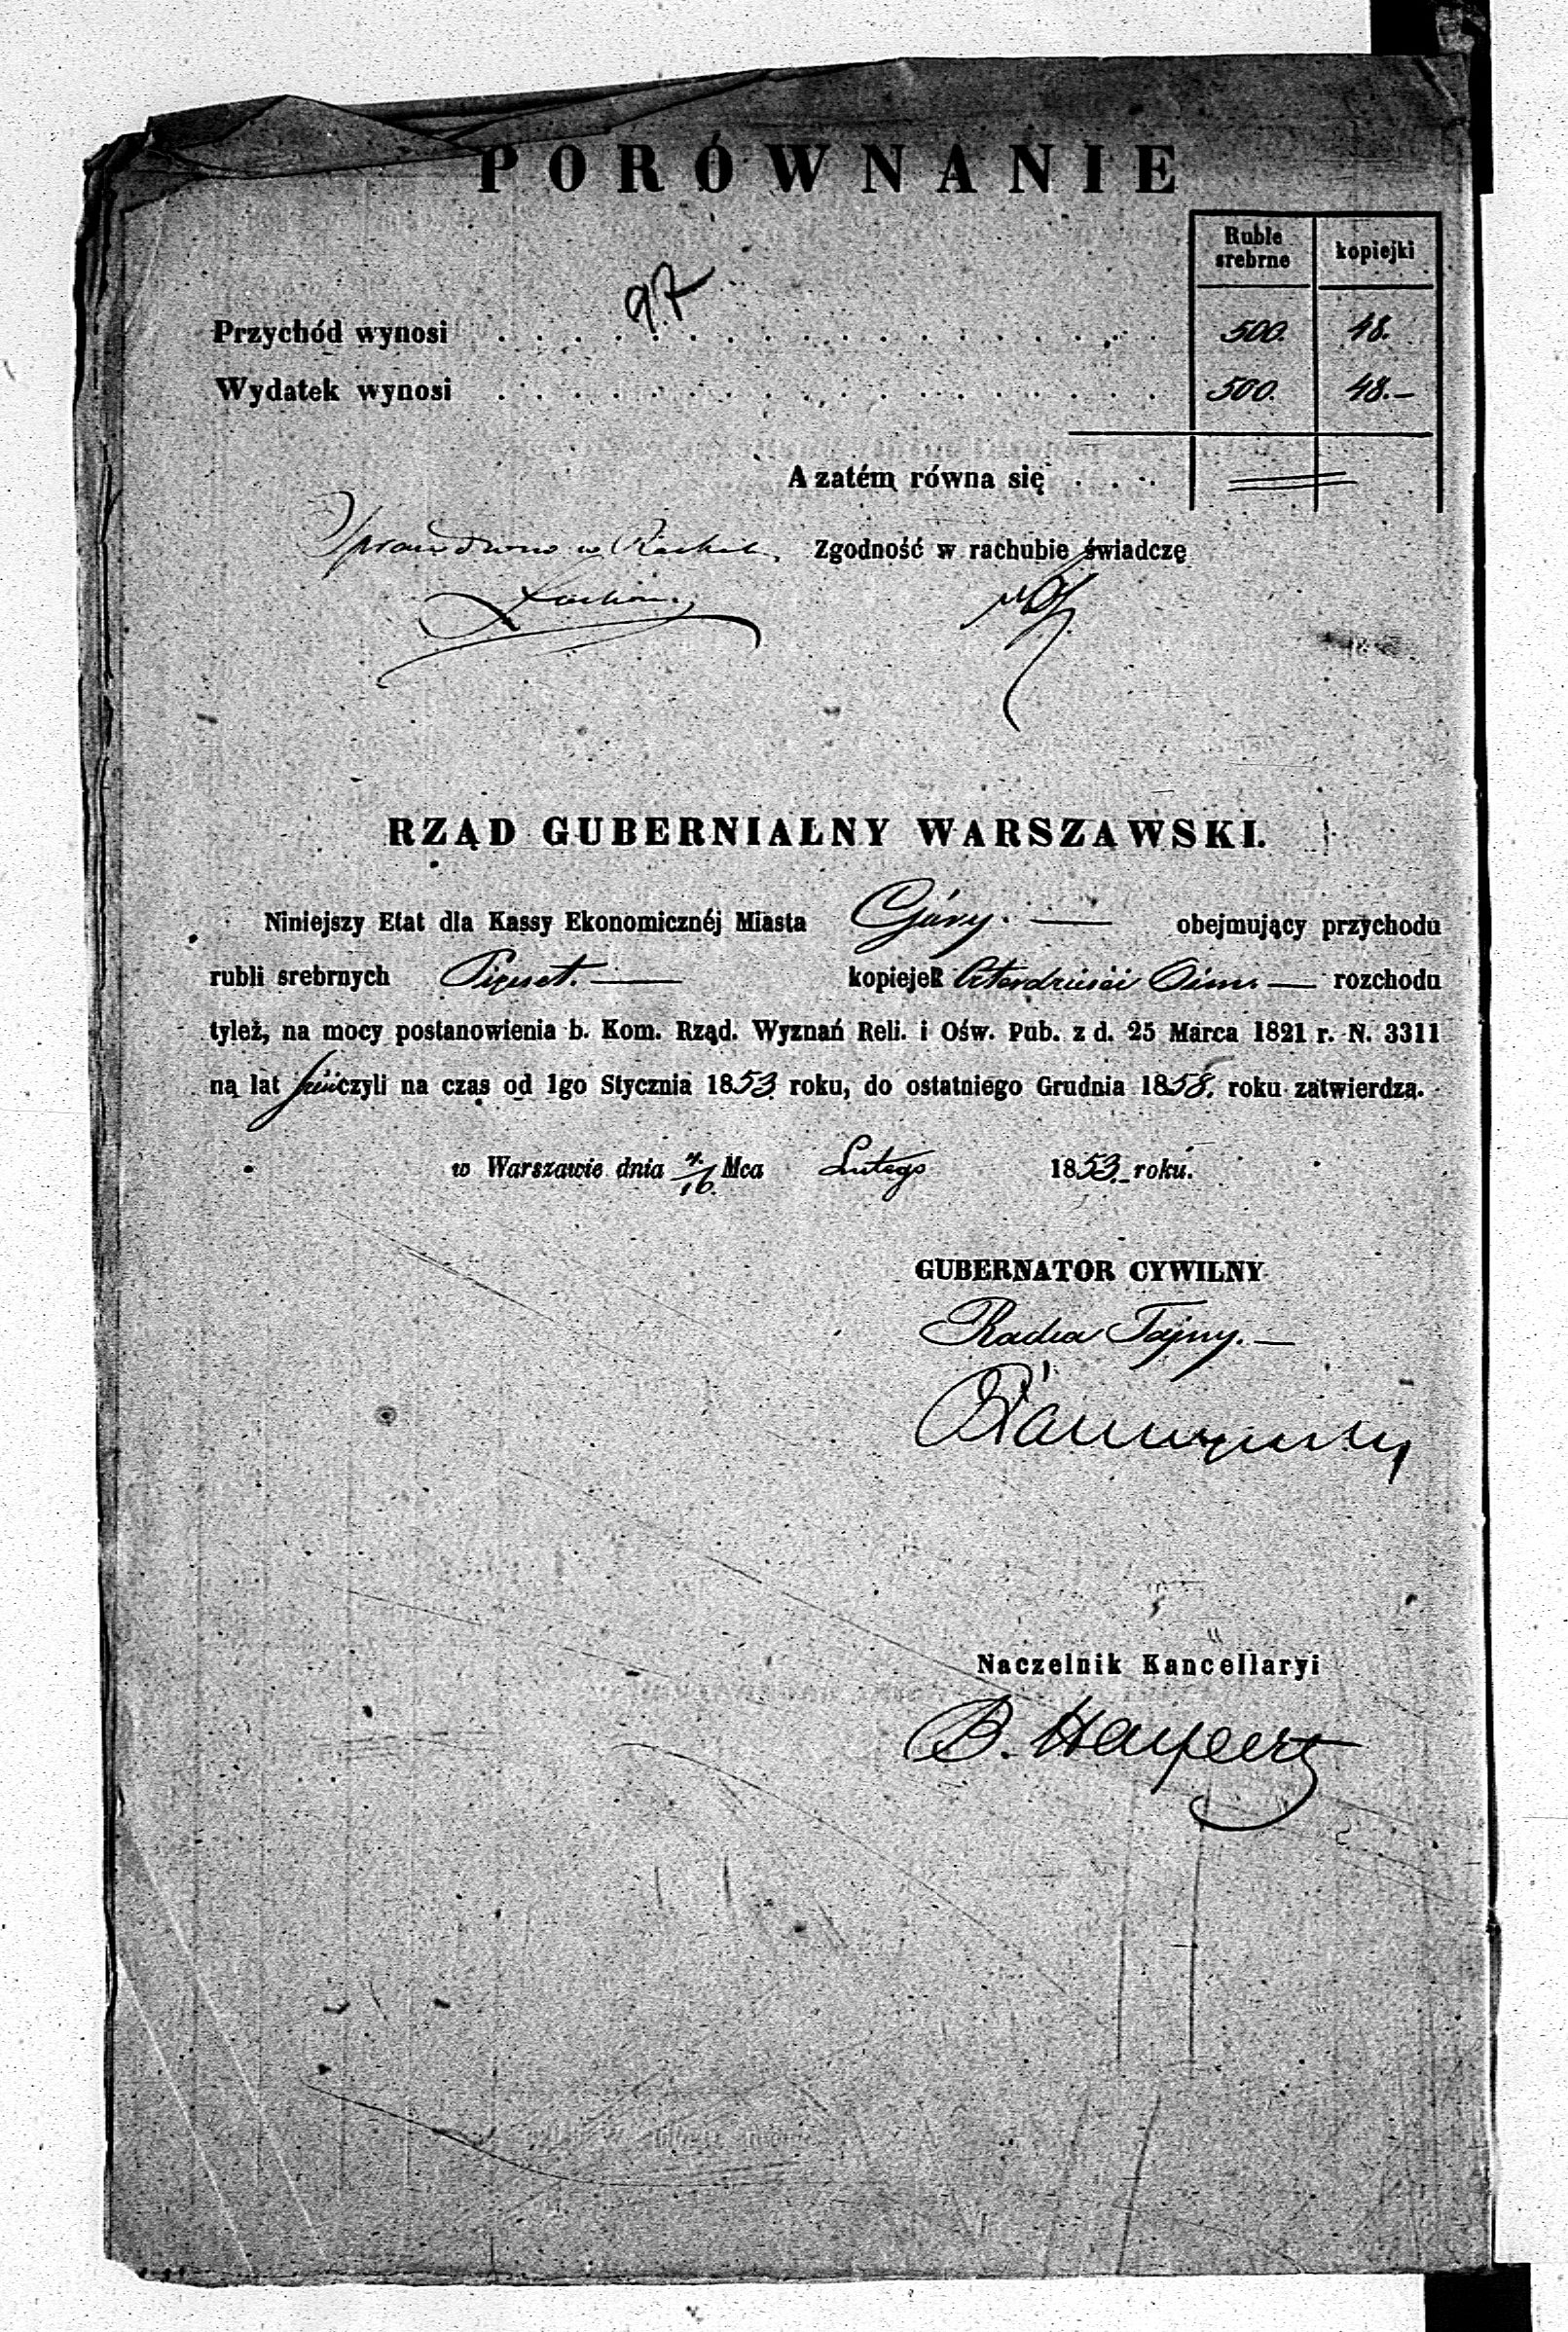 PORÓWNANIE
Ruble srebrne
kopiejki
97
Przychód wynosi . . . 500. 48.
Wydatek wynosi . . . 500. 48.—
A zatém równa się . . . .
Sprawdzono w Zgodność w rachubie świadczę
RZĄD GUBERNIALNY WARSZAWSKI.
Niniejszy Etat dla Kassy Ekonomicznéj Miasta Góry. — obejmujący przychodu
rubli srebrnych Pięset. — kopiejek Czterdzieści Ośm. — rozchodu
tyleż, na mocy postanowienia b. Kom. Rząd. Wyznań Reli. i Ośw. Pub. z d. 25 Marca 1821 r. N. 3311
na lat czyli na czas od 1go Stycznia 1853 roku, do ostatniego Grudnia 1858. roku zatwierdza.
w Warszawie dnia 4/16 Mca Lutego 1853. roku.
GUBERNATOR CYWILNY
Radca Tajny. —
Naczelnik Kancellaryi
B. Halpert